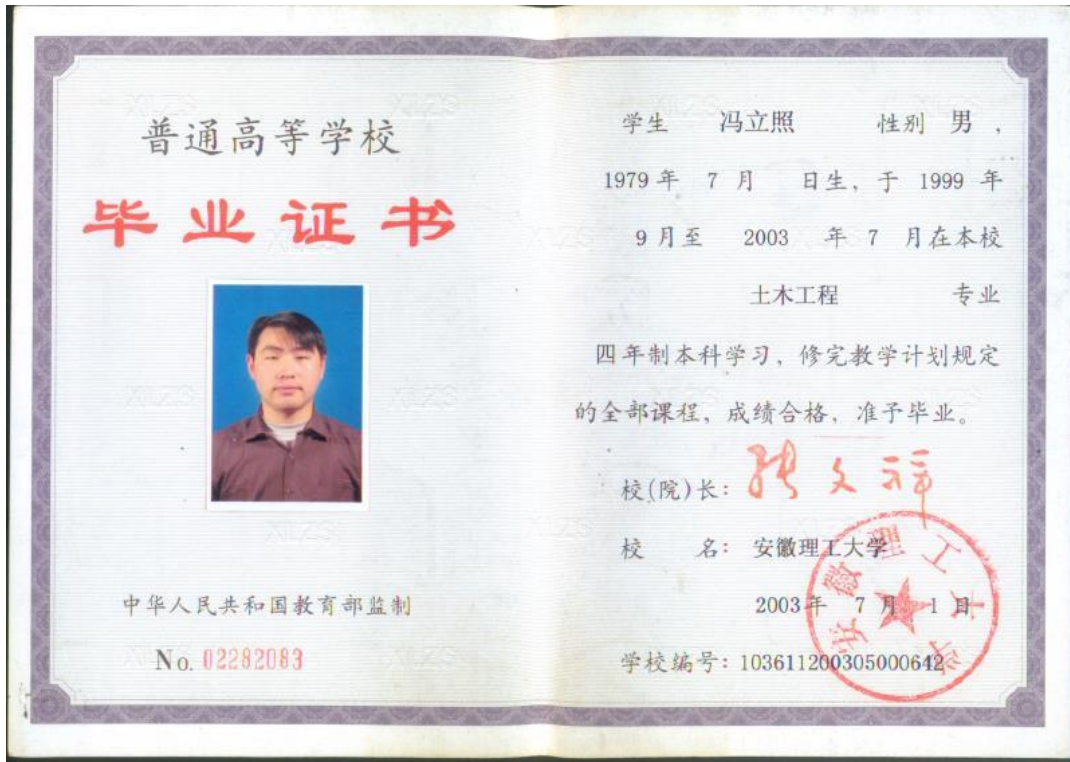 普通高等学校
毕业证书
中华人民共和国教育部监制
No. 02282083
学生 冯立照 性别 男 ,
1979 年 7 月 日生, 于 1999 年
9 月至 2003 年 7 月在本校
土木工程 专业
四年制本科学习, 修完教学计划规定
的全部课程, 成绩合格, 准予毕业。
校(院)长: 张文祥
校 名: 安徽理工大学
2003 年 7 月 1 日
学校编号: 103611200305000642
安徽理工大学
XLZS